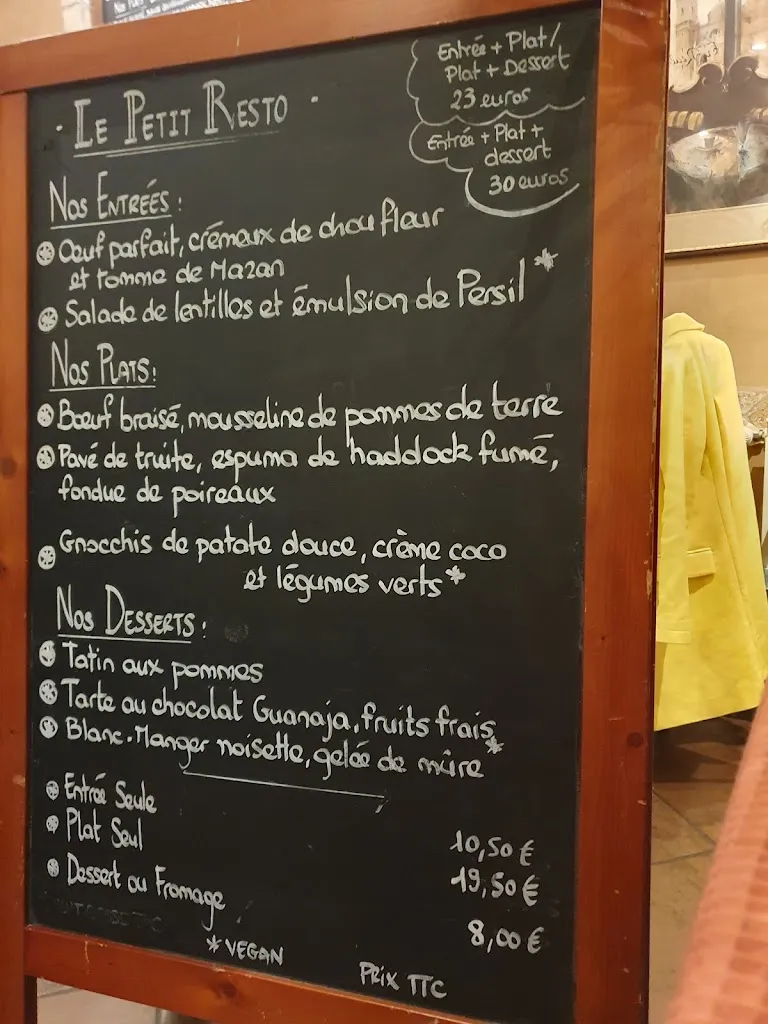 Entrée + Plat/
Plat + Dessert
23 euros
Entrée + Plat +
dessert
30 euros
· LE PETIT RESTO ·
NOS ENTRÉES :
Œuf parfait, crémeux de chou fleur
et tomme de Mazan
Salade de lentilles et émulsion de Persil *
NOS PLATS :
Bœuf braisé, mousseline de pommes de terre
Pavé de truite, espuma de haddock fumé,
fondue de poireaux
Gnocchis de patate douce, crème coco
et légumes verts *
NOS DESSERTS :
Tatin aux pommes
Tarte au chocolat Guanaja, fruits frais
Blanc-Manger noisette, gelée de mûre *
Entrée Seule 10,50 €
Plat Seul 19,50 €
Dessert ou Fromage 8,00 €
* VEGAN
PRIX TTC